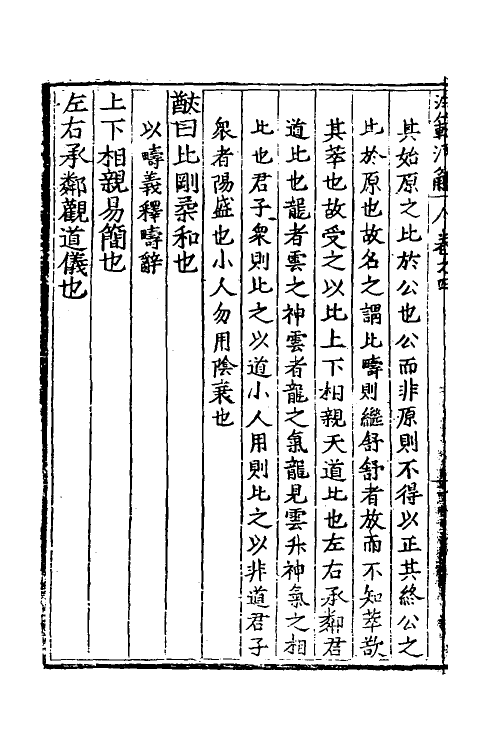 其始原之比於公也公而非原則不得以正其終公之
比於原也故名之謂比疇則繼舒舒者故而不知萃歆
其萃也故受之以比上下相親天道比也左右承鄰君
道比也龍者雲之神雲者龍之氣龍見雲升神氣之相
比也君子衆則比之以道小人用則比之以非道君子
衆者陽盛也小人勿用陰衰也
猷曰比剛柔和也
以疇義釋疇辭
上下相親易簡也
左右承鄰觀道儀也